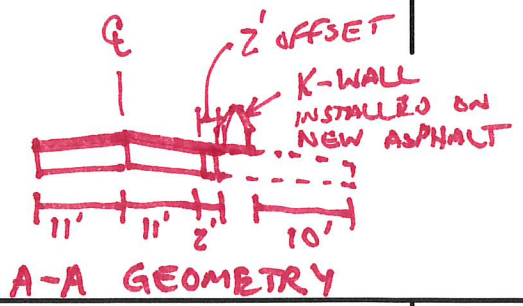 ℄
2' OFFSET
K-WALL
INSTALLED ON
NEW ASPHALT
11' 11' 2' 10'
A-A GEOMETRY